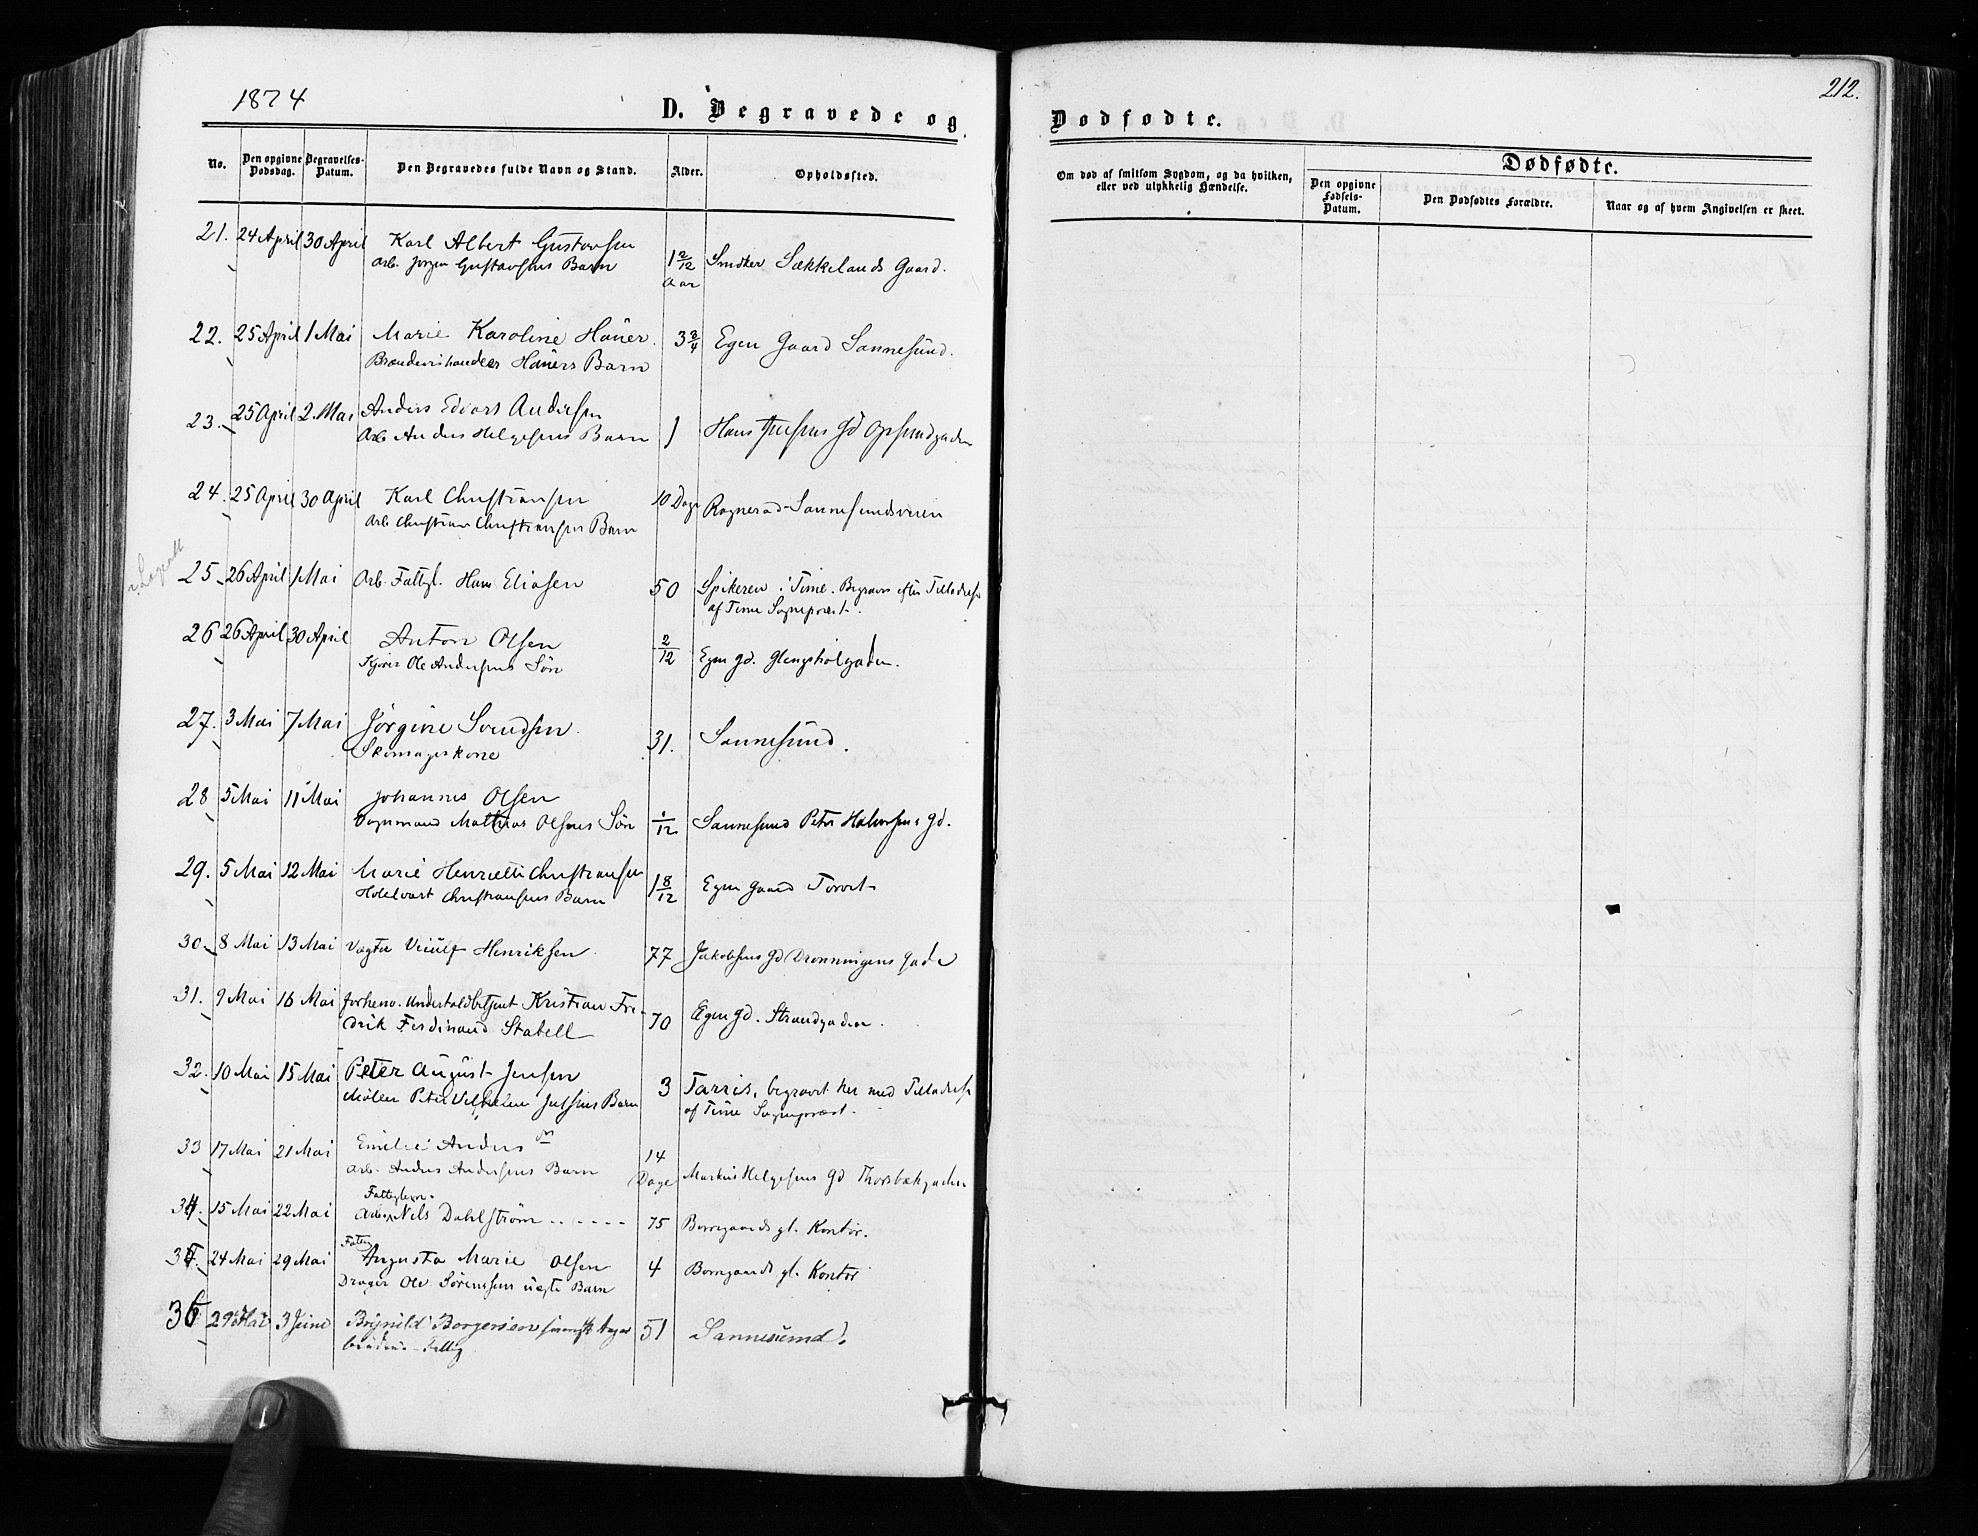 1874
D. Begravede og
Dødfødte.
212.
No.
Den opgivne Dødsdag.
Begravelses-Datum.
Den Begravedes fulde Navn og Stand.
Alder.
Opholdssted.
Om død af smitsom Sygdom, og da hvilken, eller ved ulykkelig Hændelse.
Dødfødte.
Den opgivne Fødsels-Datum.
Den Dødfødtes Forældre.
Naar og af hvem Angivelsen er skeet.
21. 24 April 30 April Karl Albert Gustavsen 1 2/12 Aar Snedker Sækkelands Gaard.
Arb. Jørgen Gustavsens Barn
22. 25 April 1 Mai Marie Karoline Haüer. 3 3/4 Egen Gaard Sannesund.
Brændevinshandler Haüers Barn
23. 25 April 2. Mai Anders Edvart Andersen 1 Hans Gd Opsundgaden
Arb Anders Helgesens Barn
24. 25 April 30 April Karl Christiansen 10 Dage Sannesundsveien
Arb Christian Christiansens Barn
25 26 April 1 Mai Arb. Fattigl. Hans Eliasen 50 Spikeren i Tune. Begravet efter Tilladelse
af Tune Sognepræst.
26 26 April 30 April Anton Olsen 2/12 Egen gd. Glengsholgaden.
Ole Andersens Søn
27. 3 Mai 7 Mai Jørgine Svendsen. 31. Sannesund.
Skomagerkone
28 5 Mai 11 Mai Johannes Olsen 1/12 Sannesund Peter Halvorsens Gd.
Vognmand Mathias Olsens Søn
29. 5 Mai 12 Mai Marie Henriette Christiansen 1 8/12 Egen Gaard Torvet
Hotelvært Christiansens Barn
30. 8 Mai 13 Mai Vægter Henriksen. 77 Jakobsens Gd Dronningens Gade
31. 9 Mai 16 Mai forhenv. Undertoldbetjent Kristian Fre- 70 Egen gd. Strandgaden.
drik Ferdinand Stabell
32. 10 Mai 15 Mai Peter August Jensen 3 Tarris, begravet her med Tilladelse
Møller Peter Vilhelm Jensens Barn af Tune Sognepræst.
33 17 Mai 21 Mai Emilie Anders 14 Dage Markus Helgesens Gd Thorsbækgaden
Arb. Anders Andersens Barn
Fattiglem.
34. 15 Mai 22 Mai Arb. Nils Dahlstrøm 75 Borregaards gl. Kontor.
Fattig
35. 24 Mai 29 Mai Augusta Marie Olsen 4 Borregaards gl. Kontor
Drager Ole Sørensens uægte Barn
36 29 Mai 3 Juni Brynild Borgersen 51 Sannesund.
Fattig